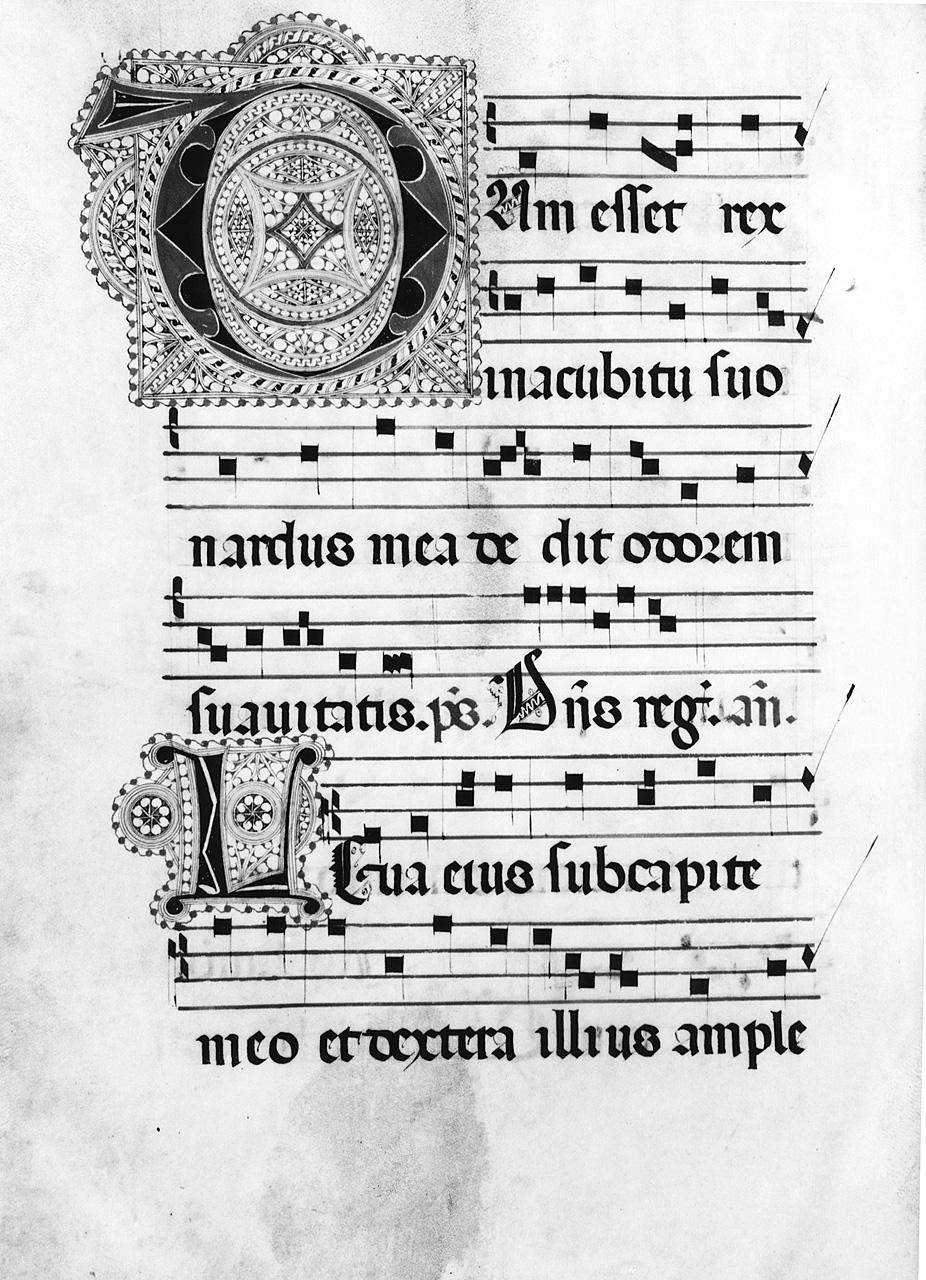 DUm esset rex
inacubitu suo
nardus mea de dit odorem
suauitatis. ps. Dñs regͭ. añ.
LEua eius subcapite
meo et dextera illius ample